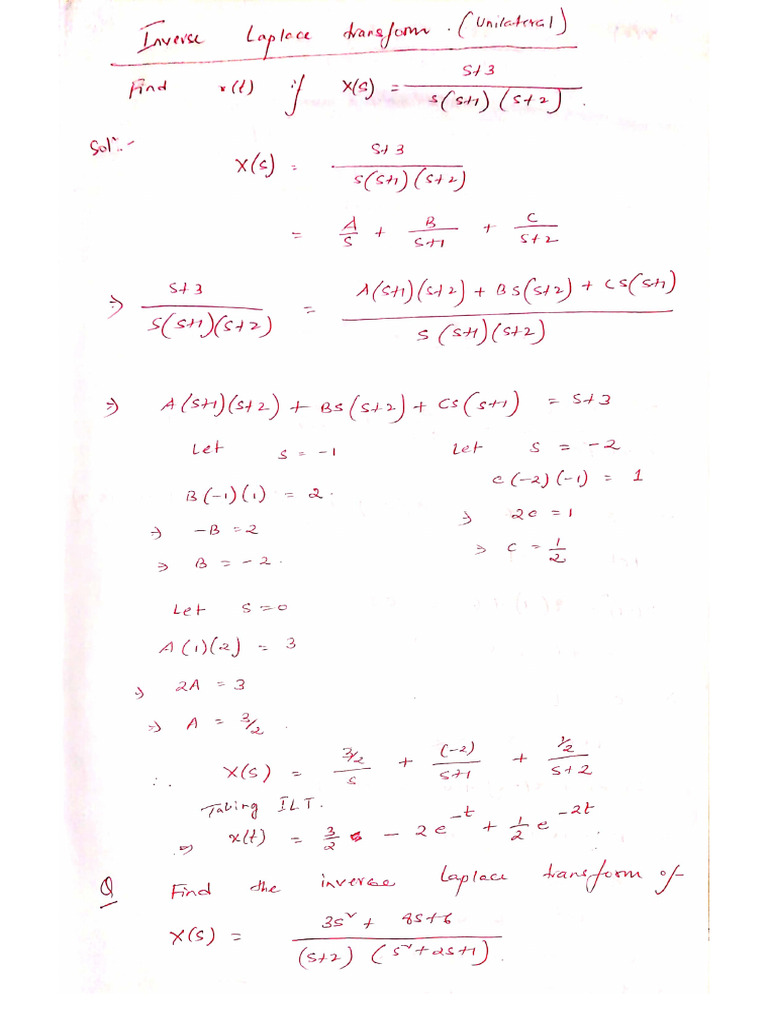 Inverse Laplace transform. (Unilateral)
Find x(t) if X(s) = s+3 / s(s+1)(s+2).
Solⁿ:- X(s) = s+3 / s(s+1)(s+2)
= A/s + B/s+1 + C/s+2
⇒ s+3 / s(s+1)(s+2) = A(s+1)(s+2) + Bs(s+2) + Cs(s+1) / s(s+1)(s+2)
⇒ A(s+1)(s+2) + Bs(s+2) + Cs(s+1) = s+3
Let s = -1
B(-1)(1) = 2.
⇒ -B = 2
⇒ B = -2.
Let s = -2
C(-2)(-1) = 1
⇒ 2C = 1
⇒ C = 1/2
Let s=0
A(1)(2) = 3
⇒ 2A = 3
⇒ A = 3/2.
∴ X(s) = 3/2 / s + (-2) / s+1 + 1/2 / s+2
Taking ILT.
⇒ x(t) = 3/2 - 2e^-t + 1/2 e^-2t
Q Find the inverse Laplace transform of
X(s) = 3s² + 8s+6 / (s+2) (s²+2s+1).